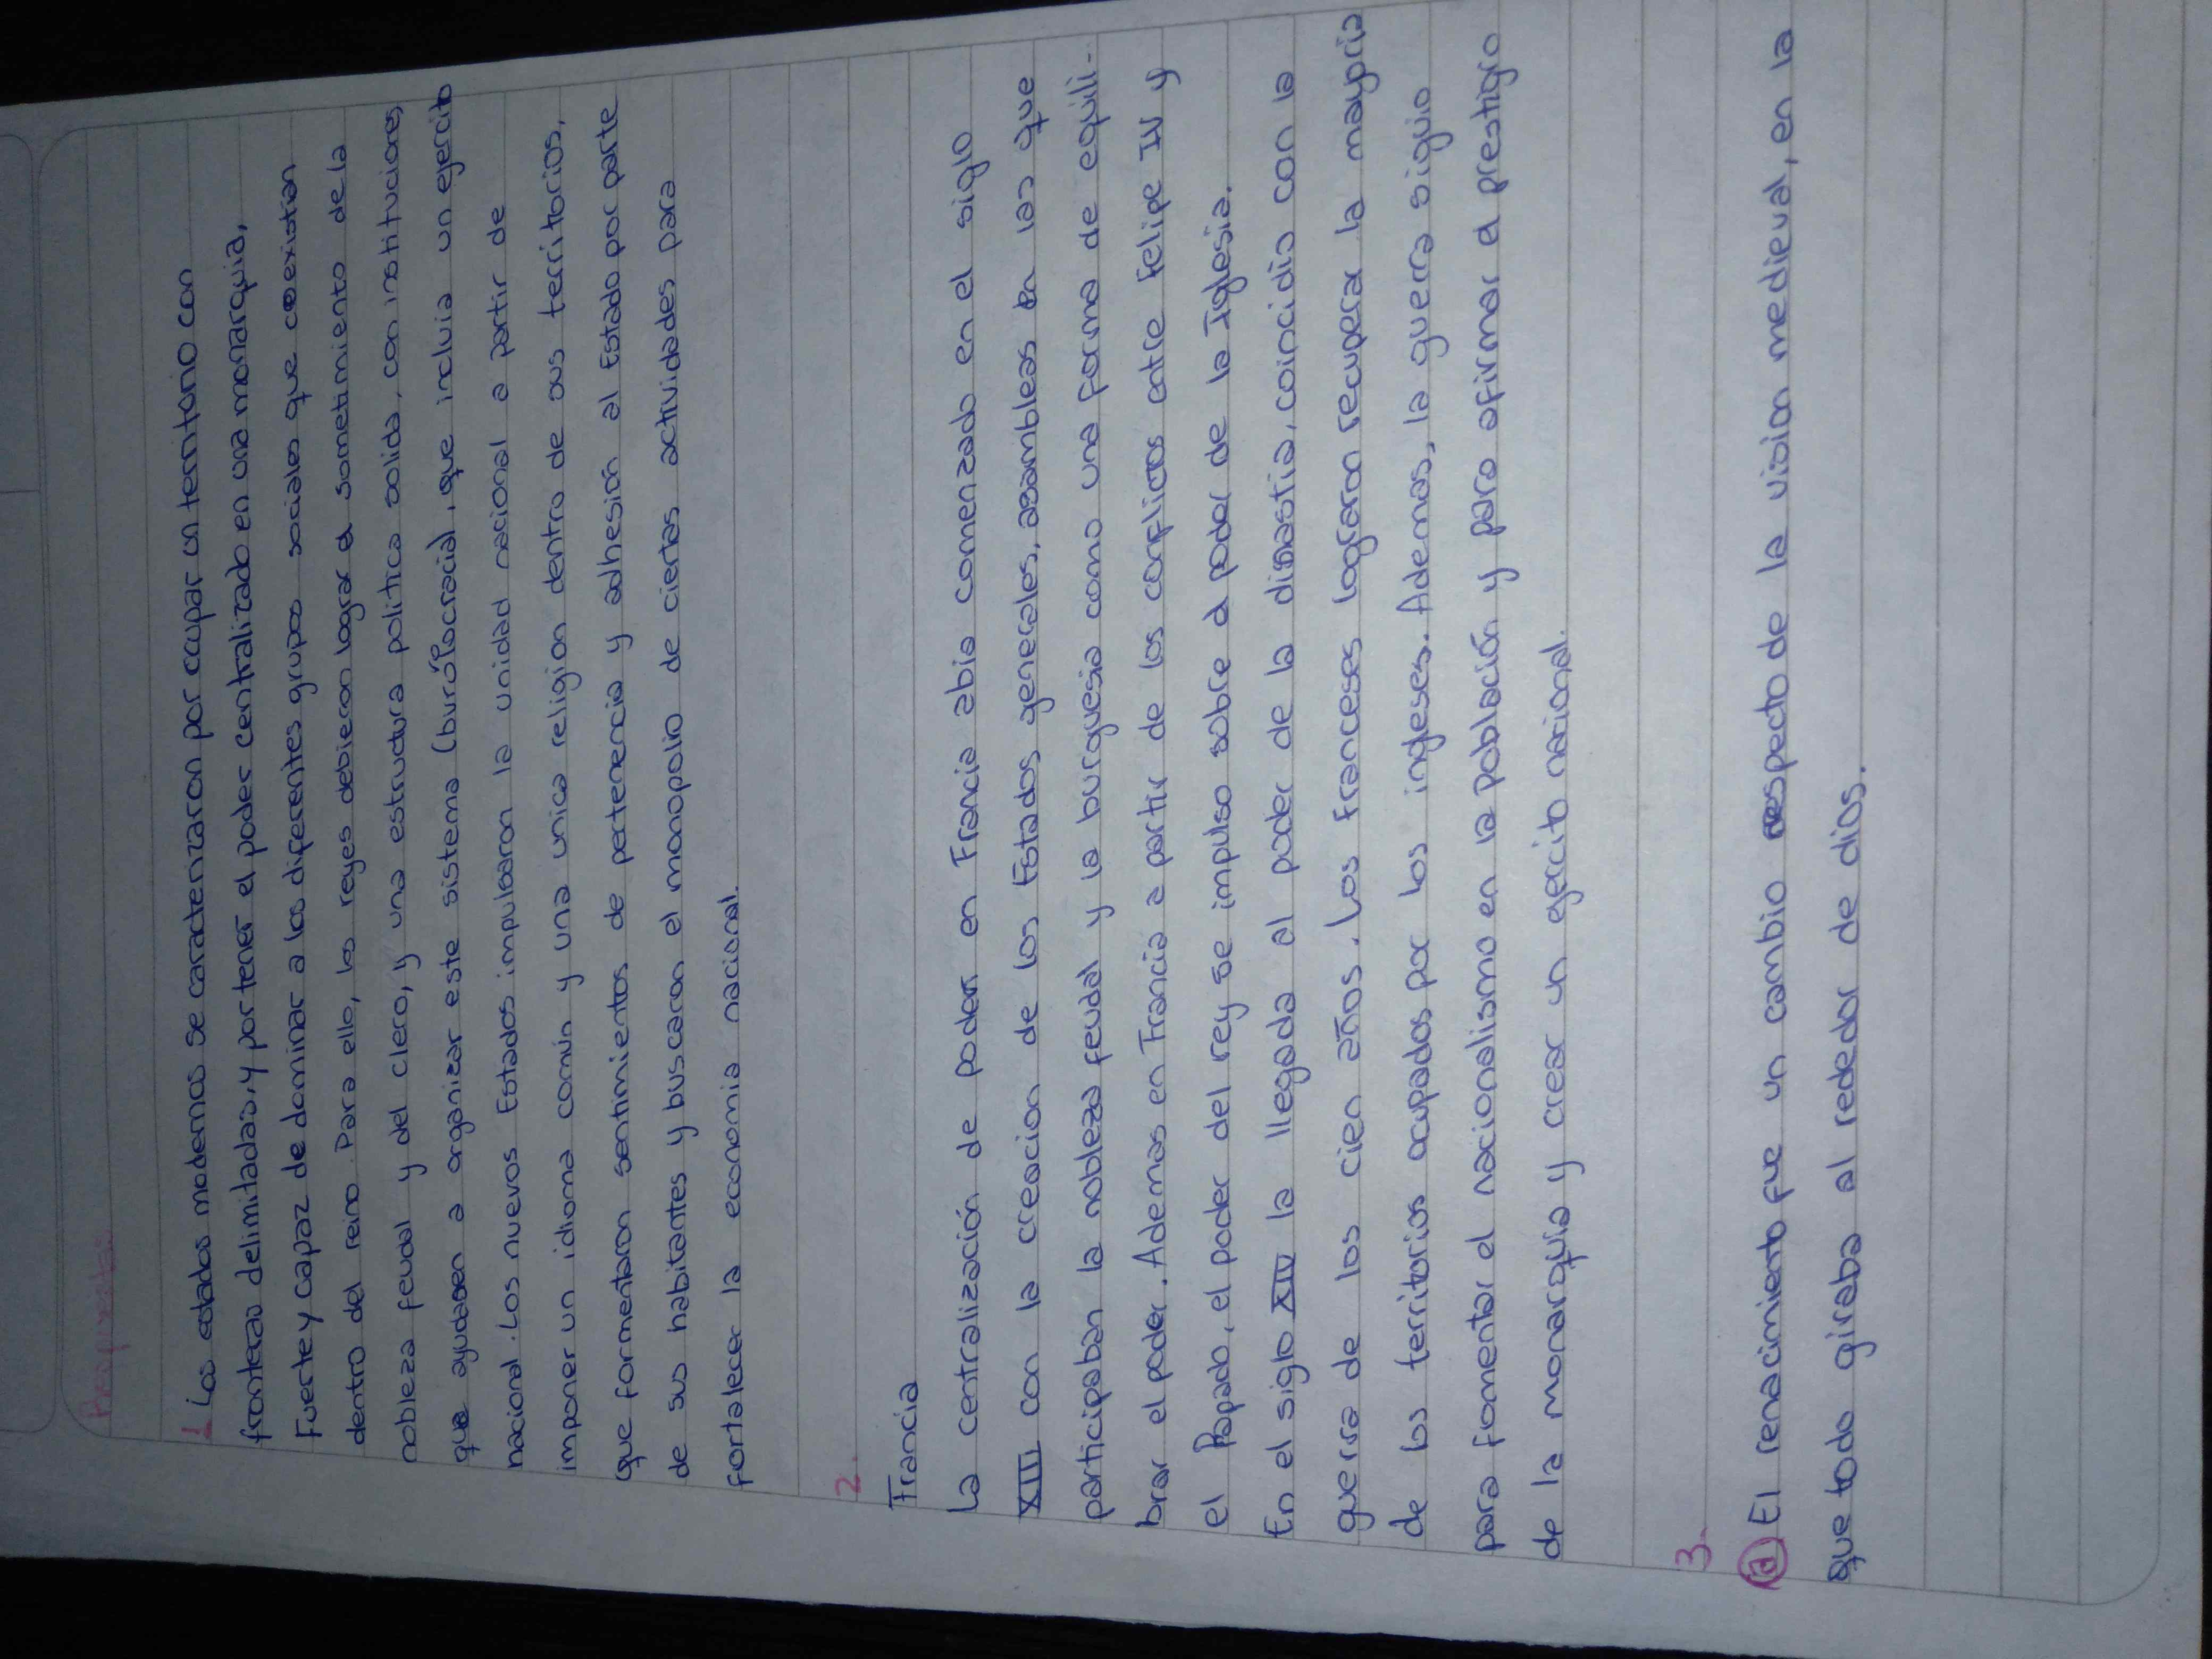 Respuestas:
1. Los estados modernos se caracterizaron por ocupar un territorio con
fronteras delimitadas, y por tener el poder centralizado en una monarquia,
Fuerte y capaz de dominar a los diferentes grupos sociales que coexistian
dentro del reino. Para ello, los reyes debieron lograr el sometimiento de la
nobleza feudal y del clero, y una estructura politica solida, con instituciones
que ayudasen a organizar este sistema que incluia un ejercito
nacional. Los nuevos Estados impulsaron la unidad nacional a partir de
imponer un idioma común y una unica religion dentro de sus territorios,
que formentaron sentimientos de pertenencia y adhesión al Estado por parte
de sus habitantes y buscaron el monopolio de ciertas actividades para
fortalecer la economia nacional.
2.
Francia
La centralización de poder en Francia abia comenzado en el siglo
XIII con la creacion de los Estados generales, asambleas en las que
participaban la nobleza feudal y la burguesia como una forma de equili-
brar el poder. Ademas en Francia a partir de los conflictos entre Felipe IV y
el Papado, el poder del rey se impulso sobre el poder de la Iglesia.
En el siglo XIV la llegada al poder de la dinastia, coincidio con la
guerra de los cien años. Los Franceses lograron recuperar la mayoria
de los territorios ocupados por los ingleses. Ademas, la guerra siguio
para fomentar el nacionalismo en la población y para afirmar el prestigio
de la monarquia y crear un ejercito nacional.
3.
a) El renacimiento fue un cambio respecto de la vision medieval, en la
que todo giraba al rededor de dios.